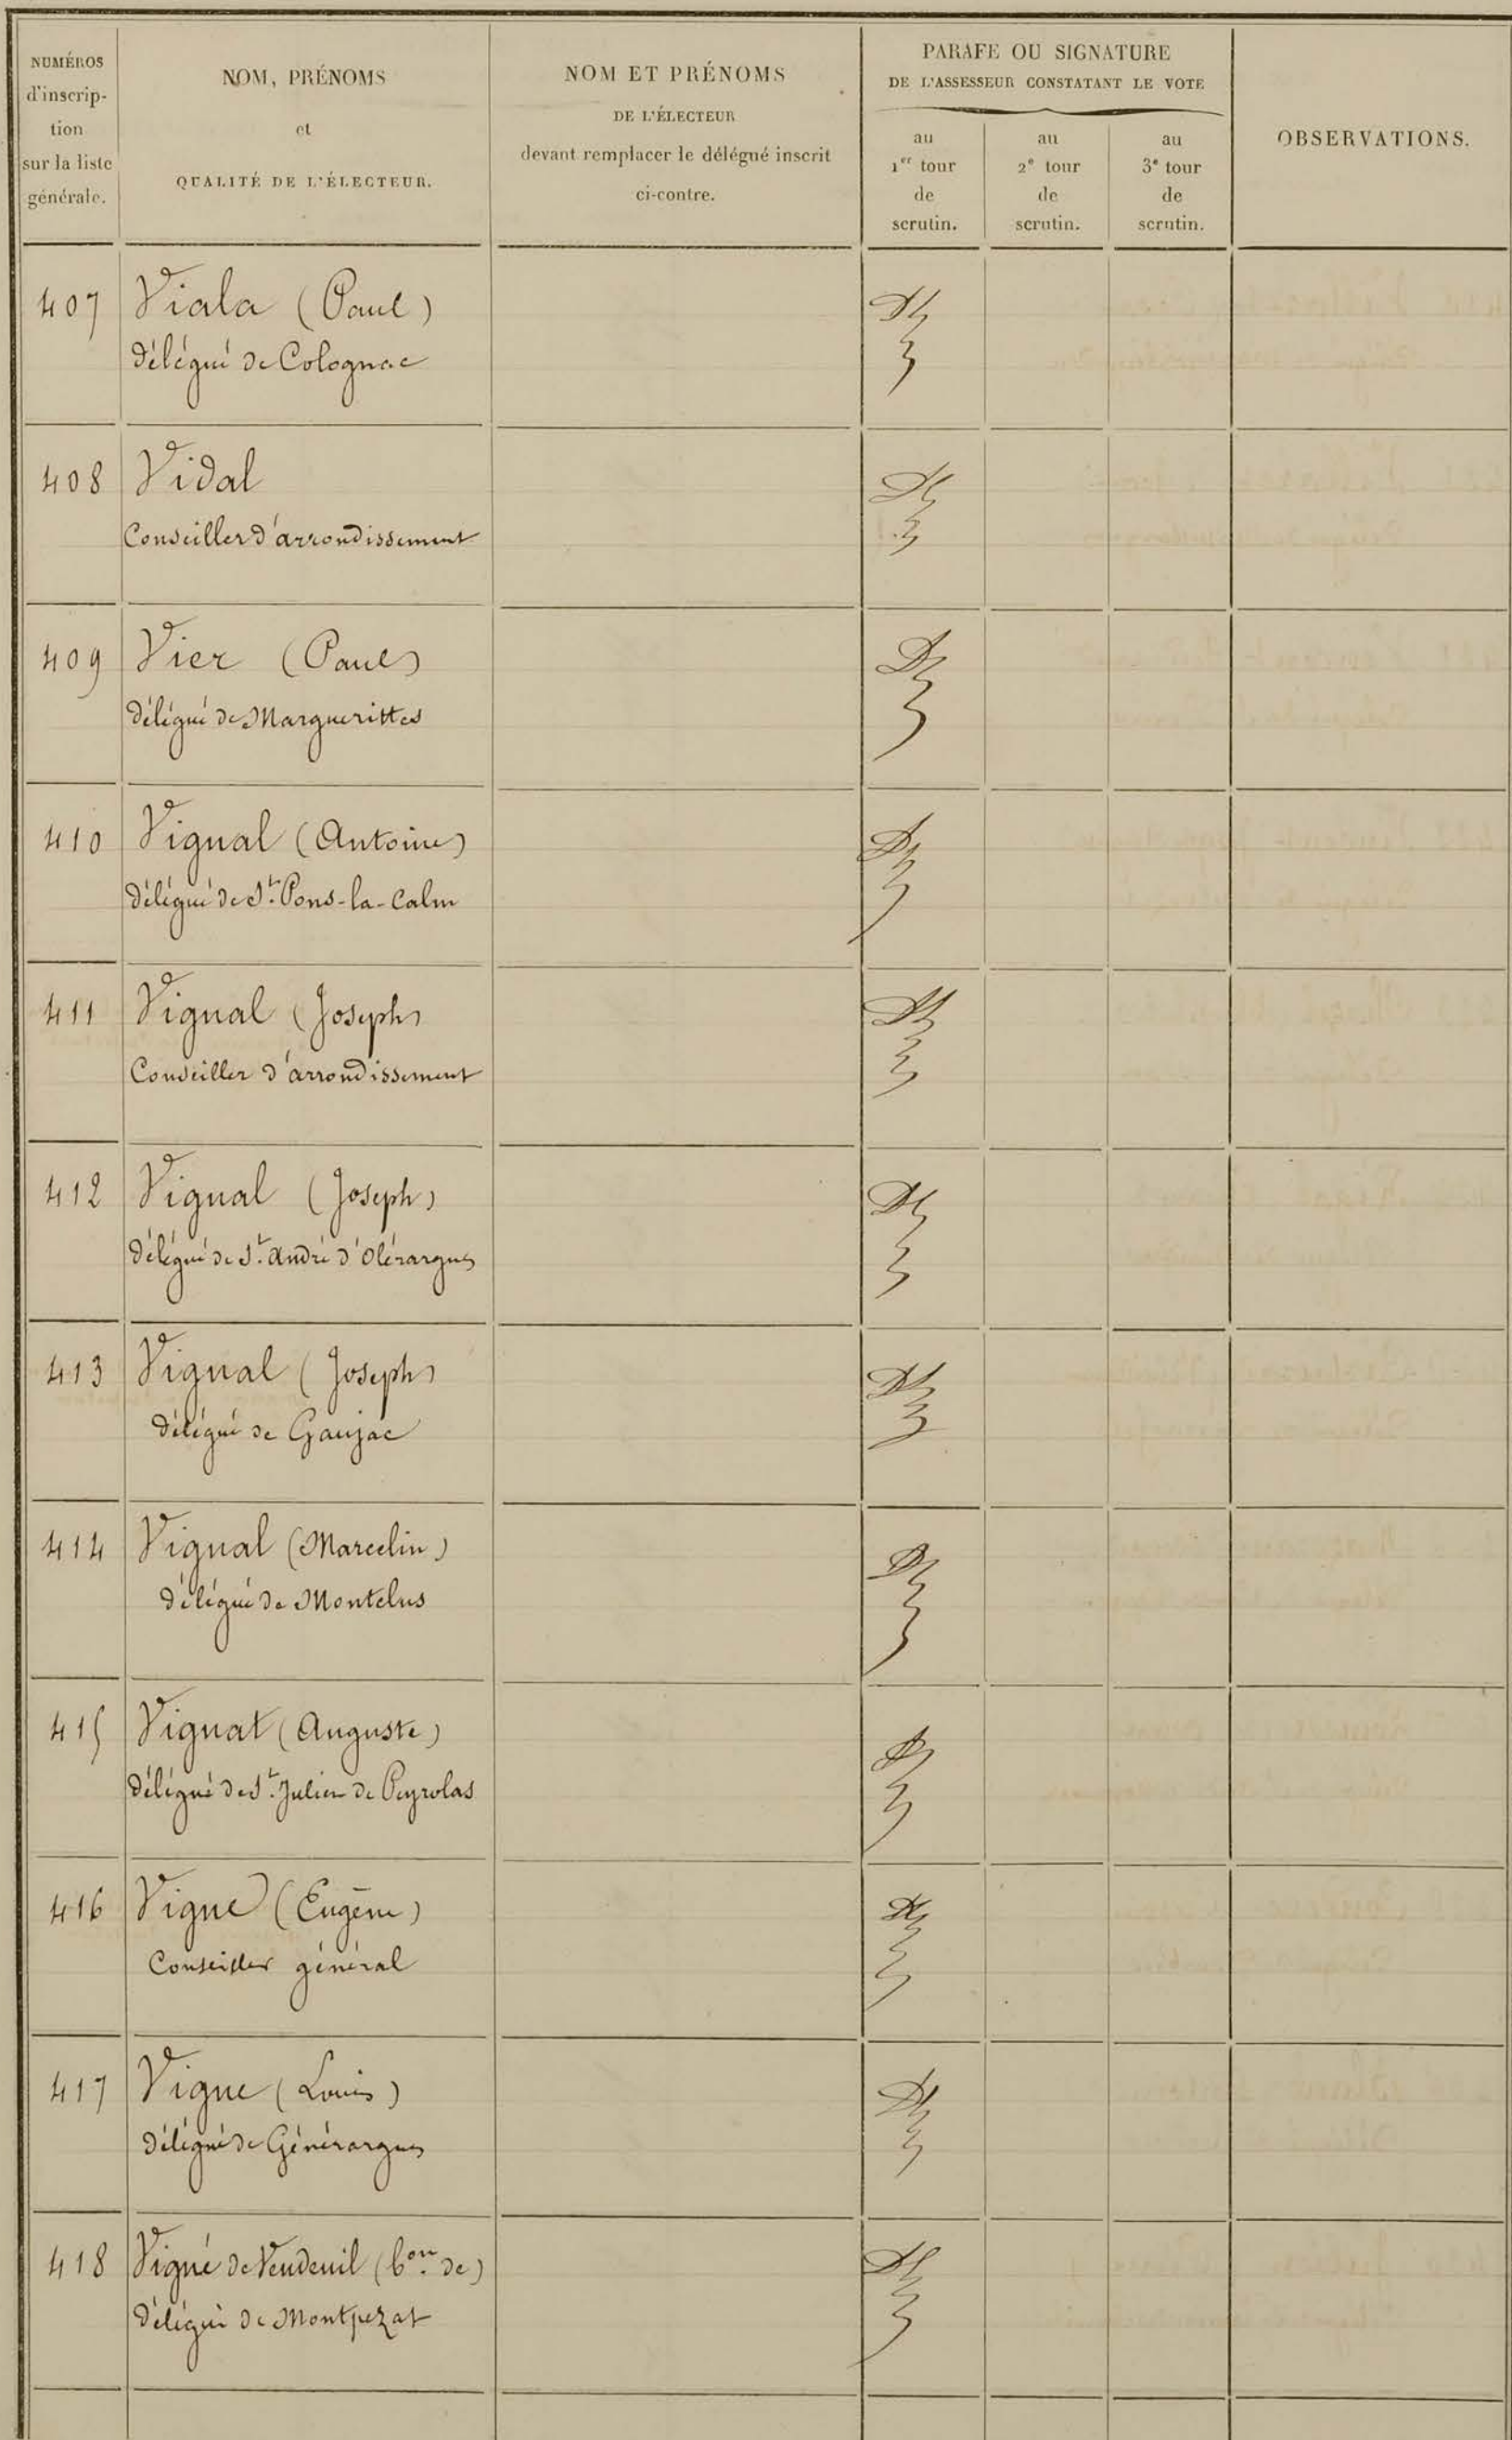 NUMÉROS
d'inscrip-
tion
sur la liste
générale.
NOM, PRÉNOMS
et
QUALITÉ DE L'ÉLECTEUR.
NOM ET PRÉNOMS
DE L'ÉLECTEUR
devant remplacer le délégué inscrit
ci-contre.
PARAFE OU SIGNATURE
DE L'ASSESSEUR CONSTATANT LE VOTE
au
1er tour
de
scrutin.
au
2e tour
de
scrutin.
au
3e tour
de
scrutin.
OBSERVATIONS.
407 Viala (Paul)
délégué de Colognac
408 Vidal
Conseiller d'arrondissement
409 Vier (Paul)
délégué de Marguerittes
410 Vignal (Antoine)
délégué de St. Pons-la-Calm
411 Vignal (Joseph)
Conseiller d'arrondissement
412 Vignal (Joseph)
délégué de St. André d'Olérargues
413 Vignal (Joseph)
délégué de Gaujac
414 Vignal (Marcelin)
délégué de Montclus
415 Vignat (Auguste)
délégué de St. Julien de Peyrolas
416 Vigne (Eugène)
Conseiller général
417 Vigne (Louis)
délégué de Générargues
418 Vigné de Vendeuil (bon. de)
délégué de Montpezat